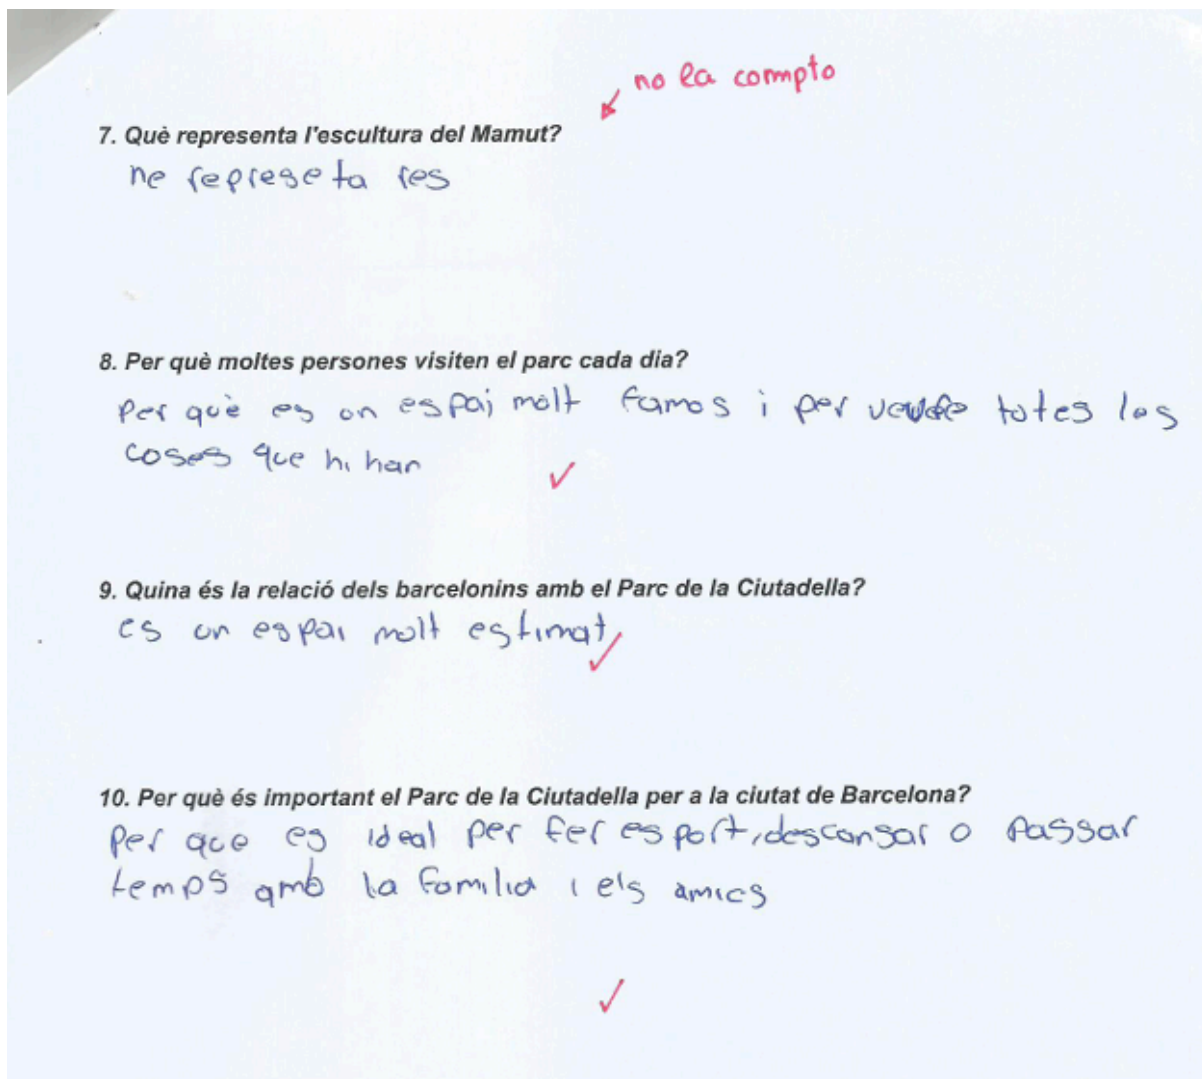 no la compto
7. Què representa l'escultura del Mamut?
ne represeta res
8. Per què moltes persones visiten el parc cada dia?
Per què es un espai molt famos i per veure totes les
coses que hi han
9. Quina és la relació dels barcelonins amb el Parc de la Ciutadella?
es un espai molt estimat
10. Per què és important el Parc de la Ciutadella per a la ciutat de Barcelona?
Per que es ideal per fer esport, descansar o passar
temps amb la familia i els amics